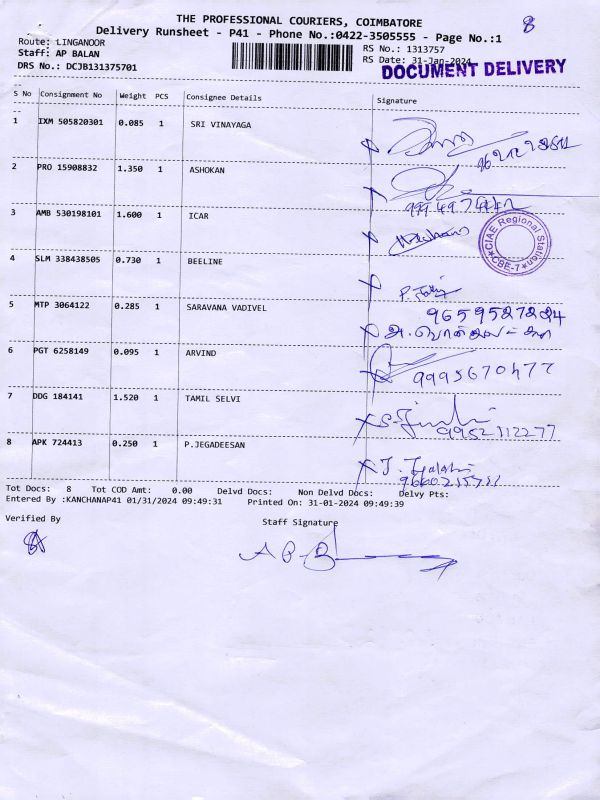 THE PROFESSIONAL COURIERS, COIMBATORE
8
Delivery Runsheet - P41 - Phone No.:0422-3505555 - Page No.:1
Route: LINGANOOR
RS No.: 1313757
Staff: AP BALAN
RS Date: 31-Jan-2024
DRS No.: DCJB131375701
DOCUMENT DELIVERY
S No Consignment No Weight PCS Consignee Details Signature
1 IXM 505820301 0.085 1 SRI VINAYAGA
2 PRO 15908832 1.350 1 ASHOKAN
3 AMB 530198101 1.600 1 ICAR
CIAE Regional Station CBE-7
4 SLM 338438505 0.730 1 BEELINE
9659527224
5 MTP 3064122 0.285 1 SARAVANA VADIVEL
6 PGT 6258149 0.095 1 ARVIND
9995670477
7 DDG 184141 1.520 1 TAMIL SELVI
9952112277
8 APK 724413 0.250 1 P.JEGADEESAN
Tot Docs: 8 Tot COD Amt: 0.00 Delvd Docs: Non Delvd Docs: Delvy Pts:
Entered By :KANCHANAP41 01/31/2024 09:49:31 Printed On: 31-01-2024 09:49:39
Verified By
Staff Signature